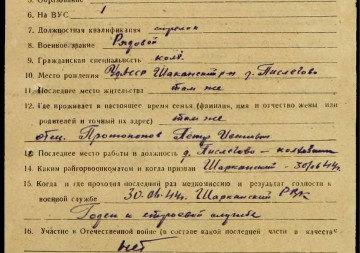 6. На ВУС 1
7. Должностная квалификация стрелок
8. Военное звание Рядовой
9. Гражданская специальность колх.
10. Место рождения Шарканский р-н д. Пислегово
11. Последнее место жительства там же
12. Где проживает в настоящее время семья (фамилия, имя и отчество жены или
родителей и точный их адрес) там же
отец Протопопов Петр
13. Последнее место работы и должность д. Пислегово - колхозник
14. Каким райгорвоенкоматом и когда призван Шарканский - 30/06 44 г.
15. Когда и где проходил последний раз медкомиссию и результат годности к
военной службе 30.06.44 г. Шарканский РВК
Годен к строевой службе
16. Участие в Отечественной войне (в составе какой последней части и в качестве
нет